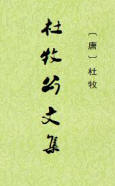 杜牧文集
〔唐〕杜牧